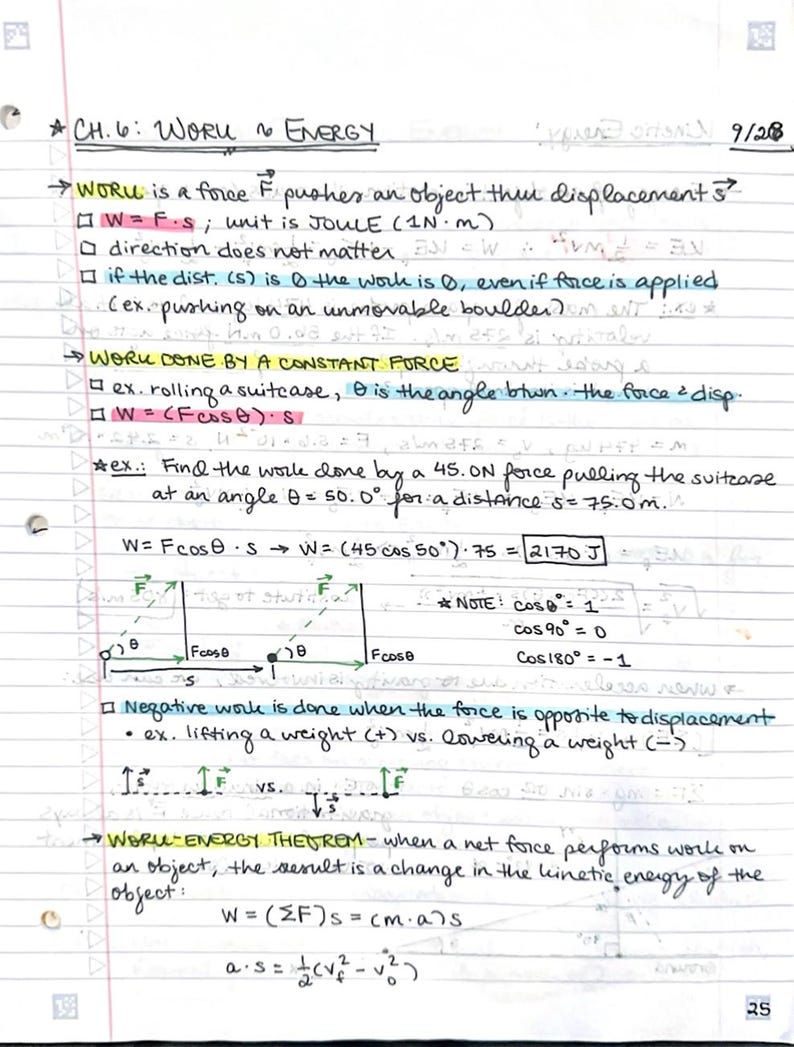 ★ CH. 6: WORK & ENERGY 9/28
→ WORK is a force F⃗ pushes an object thru displacement s⃗
□ W = F · s ; unit is JOULE (1N · m)
□ direction does not matter
□ if the dist. (s) is 0 the work is 0, even if force is applied
(ex. pushing on an unmovable boulder)
→ WORK DONE BY A CONSTANT FORCE
□ ex. rolling a suitcase, θ is the angle btwn. the force & disp.
□ W = (Fcosθ) · s
★ ex.: Find the work done by a 45.0N force pulling the suitcase
at an angle θ = 50.0° for a distance s = 75.0m.
W = Fcosθ · s → W = (45 cos 50°) · 75 = 2170 J
F⃗ F⃗ ★ NOTE: cos0° = 1
cos90° = 0
θ Fcosθ θ Fcosθ cos180° = -1
s
□ Negative work is done when the force is opposite to displacement
• ex. lifting a weight (+) vs. lowering a weight (-)
s⃗ F⃗ vs. s⃗ F⃗
→ WORK-ENERGY THEOREM - when a net force performs work on
an object, the result is a change in the kinetic energy of the
object:
W = (ΣF)s = (m · a)s
a · s = ½(v_f² - v_0²)
25